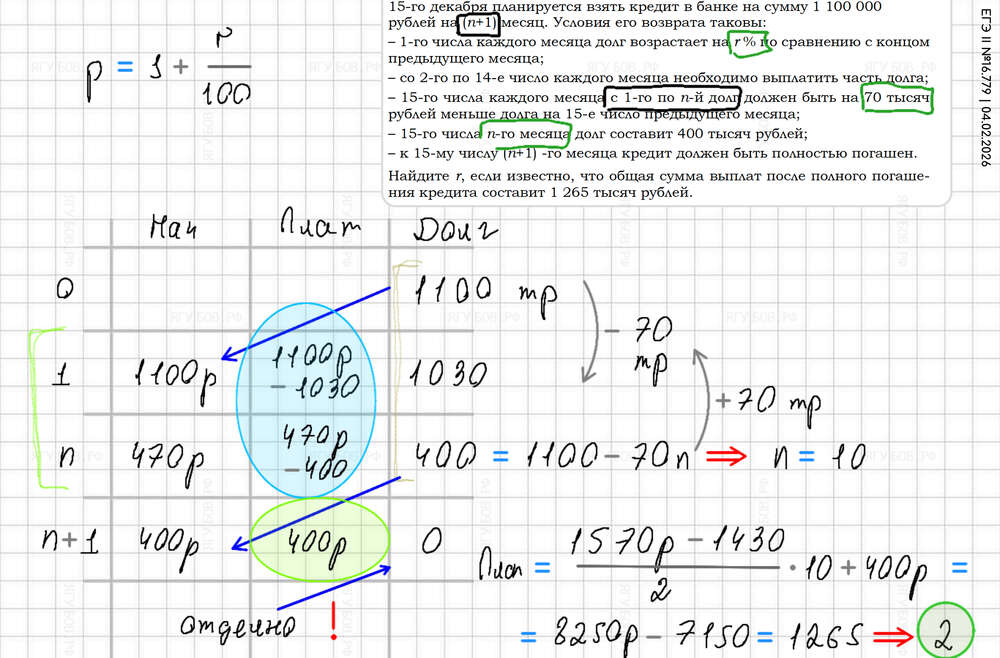 15-го декабря планируется взять кредит в банке на сумму 1 100 000
рублей на (n+1) месяц. Условия его возврата таковы:
– 1-го числа каждого месяца долг возрастает на r % по сравнению с концом
предыдущего месяца;
– со 2-го по 14-е число каждого месяца необходимо выплатить часть долга;
– 15-го числа каждого месяца с 1-го по n-й долг должен быть на 70 тысяч
рублей меньше долга на 15-е число предыдущего месяца;
– 15-го числа n-го месяца долг составит 400 тысяч рублей;
– к 15-му числу (n+1) -го месяца кредит должен быть полностью погашен.
Найдите r, если известно, что общая сумма выплат после полного погаше-
ния кредита составит 1 265 тысяч рублей.
ЕГЭ II №16.779 | 04.02.2026
p = 1 + r/100
Нач Плат Долг
0 1100 тр
- 70 тр
1 1100p 1100p - 1030 1030
+70 тр
n 470p 470p - 400 400 = 1100 - 70n ⇒ n = 10
n+1 400p 400p 0
Плат = (1570p - 1430)/2 · 10 + 400p =
отдельно !
= 8250p - 7150 = 1265 ⇒ 2
ЯГУБОВ.РФ